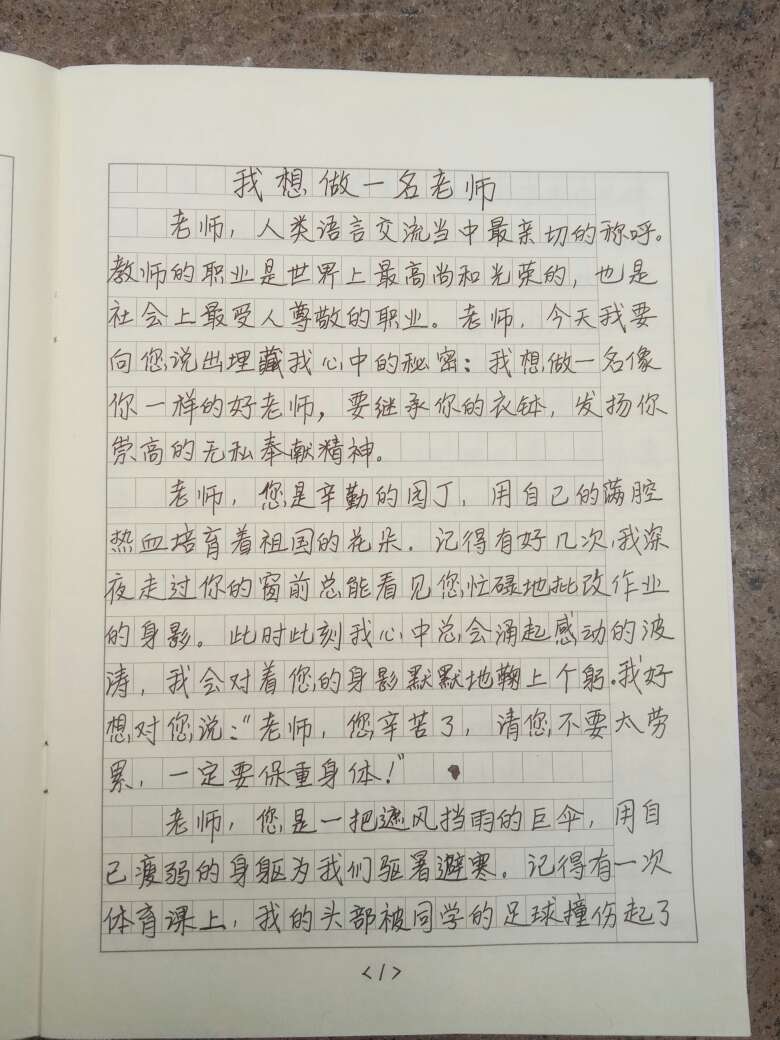 我想做一名老师
老师，人类语言交流当中最亲切的称呼。
教师的职业是世界上最高尚和光荣的，也是
社会上最受人尊敬的职业。老师，今天我要
向您说出埋藏我心中的秘密：我想做一名像
你一样的好老师，要继承你的衣钵，发扬你
崇高的无私奉献精神。
老师，您是辛勤的园丁，用自己的满腔
热血培育着祖国的花朵．记得有好几次，我深
夜走过你的窗前总能看见您忙碌地批改作业
的身影。此时此刻我心中总会涌起感动的波
涛，我会对着您的身影默默地鞠上个躬．我好
想对您说：“老师，您辛苦了，请您不要太劳
累，一定要保重身体！”
老师，您是一把遮风挡雨的巨伞，用自
己瘦弱的身躯为我们驱暑避寒．记得有一次
体育课上，我的头部被同学的足球撞伤起了
<1>